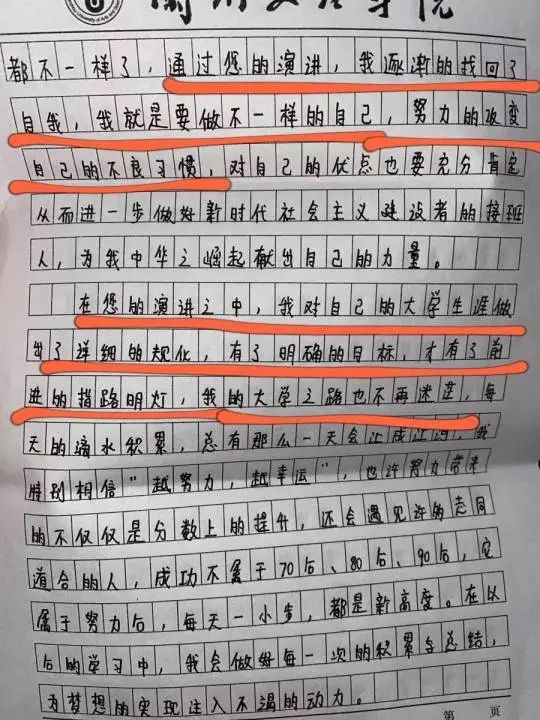 都不一样了，通过您的演讲，我逐渐的找回了
自我，我就是要做不一样的自己，努力的改变
自己的不良习惯，对自己的优点也要充分肯定
从而进一步做好新时代社会主义建设者的接班
人，为我中华之崛起献出自己的力量。
在您的演讲之中，我对自己的大学生涯做
出了详细的规化，有了明确的目标，才有了前
进的指路明灯，我的大学之路也不再迷茫，每
天的滴水积累，总有那么一天会汇成江河，我
特别相信“越努力，越幸运”，也许努力带来
的不仅仅是分数上的提升，还会遇见许多志同
道合的人，成功不属于70后、80后、90后，它
属于努力后，每天一小步，都是新高度。在以
后的学习中，我会做好每一次的积累与总结，
为梦想的实现注入不竭的动力。
第 页